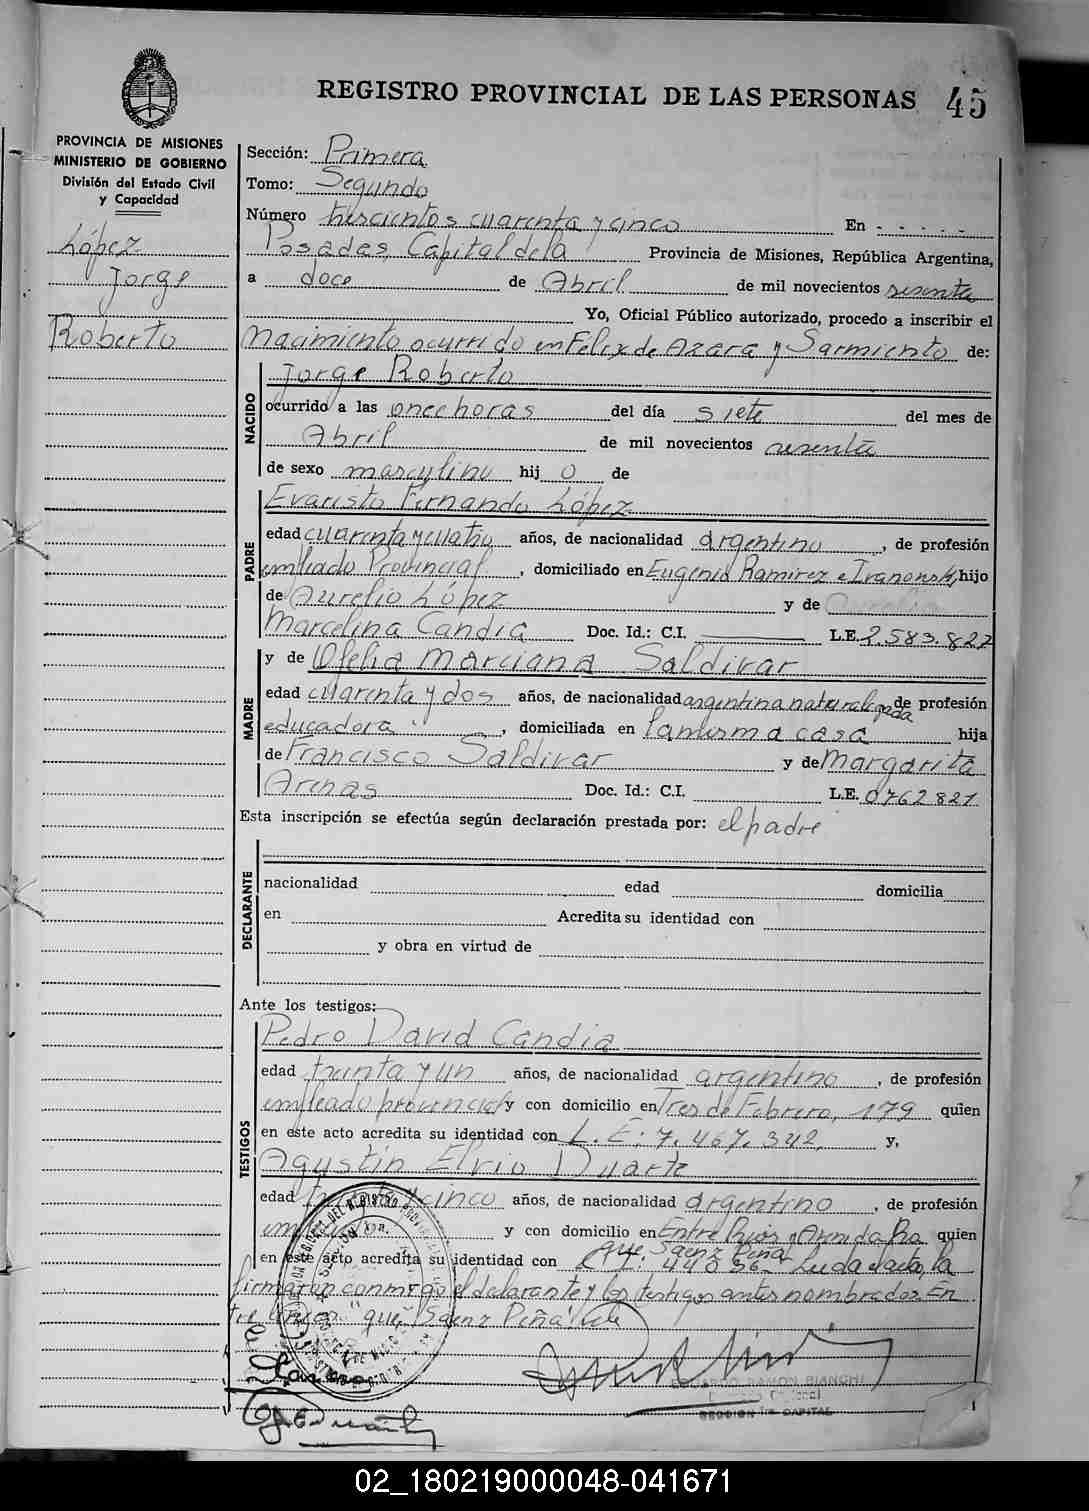 REGISTRO PROVINCIAL DE LAS PERSONAS 45
PROVINCIA DE MISIONES
MINISTERIO DE GOBIERNO
División del Estado Civil
y Capacidad
López
Jorge
Roberto
Sección: Primera
Tomo: Segundo
Número trescientos cuarenta y cinco En - - - - -
Posadas, Capital de la Provincia de Misiones, República Argentina,
a doce de Abril de mil novecientos sesenta
Yo, Oficial Público autorizado, procedo a inscribir el
Nacimiento ocurrido en Felix de Azara y Sarmiento de:
NACIDO
Jorge Roberto
ocurrido a las once horas del día siete del mes de
Abril de mil novecientos sesenta
de sexo masculino hij o de
PADRE
Evaristo Fernando López
edad cuarenta y cuatro años, de nacionalidad argentino, de profesión
empleado Provincial, domiciliado en Eugenio Ramirez e Ivanonski, hijo
de Aurelio López y de Aurelia
Marcelina Candia Doc. Id.: C.I. L.E. 2.583.827
MADRE
y de Ofelia Marciana Saldivar
edad cuarenta y dos años, de nacionalidad argentina naturalizada de profesión
educadora, domiciliada en la misma casa hija
de Francisco Saldivar y de Margarita
Arenas Doc. Id.: C.I. L.E. 0762821
Esta inscripción se efectúa según declaración prestada por: el padre
DECLARANTE
nacionalidad edad domicilia
en Acredita su identidad con
y obra en virtud de
Ante los testigos:
TESTIGOS
Pedro David Candia
edad treinta y un años, de nacionalidad argentino, de profesión
empleado provincial y con domicilio en Tres de Febrero, 179 quien
en este acto acredita su identidad con L.E: 7.467.342, y,
Agustín Elvio Duarte
edad cinco años, de nacionalidad argentino, de profesión
y con domicilio en Entre Rios y quien
que, Saenz Peña
en este acto acredita su identidad con Leida el acta, la
firmaron conmigo el declarante y los testigos antes nombrados. En
tre lineas "que, Saenz Peña" Vale
EDUARDO RAMON BIANCHI
SECCION 1a CAPITAL
02_180219000048-041671